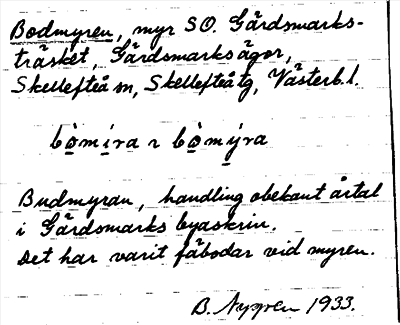 Bodmyren, myr SO. Gärdsmarks-
träsket, Gärdsmarks ägor,
Skellefteå sn, Skellefteå tg, Västerb. l.
bò̱mi̱ra ~ bò̱mý̱ra
Budmyran, handling obekant årtal
i Gärdsmarks byaskrin.
Det har varit fäbodar vid myren.
B. Nygren 1933.